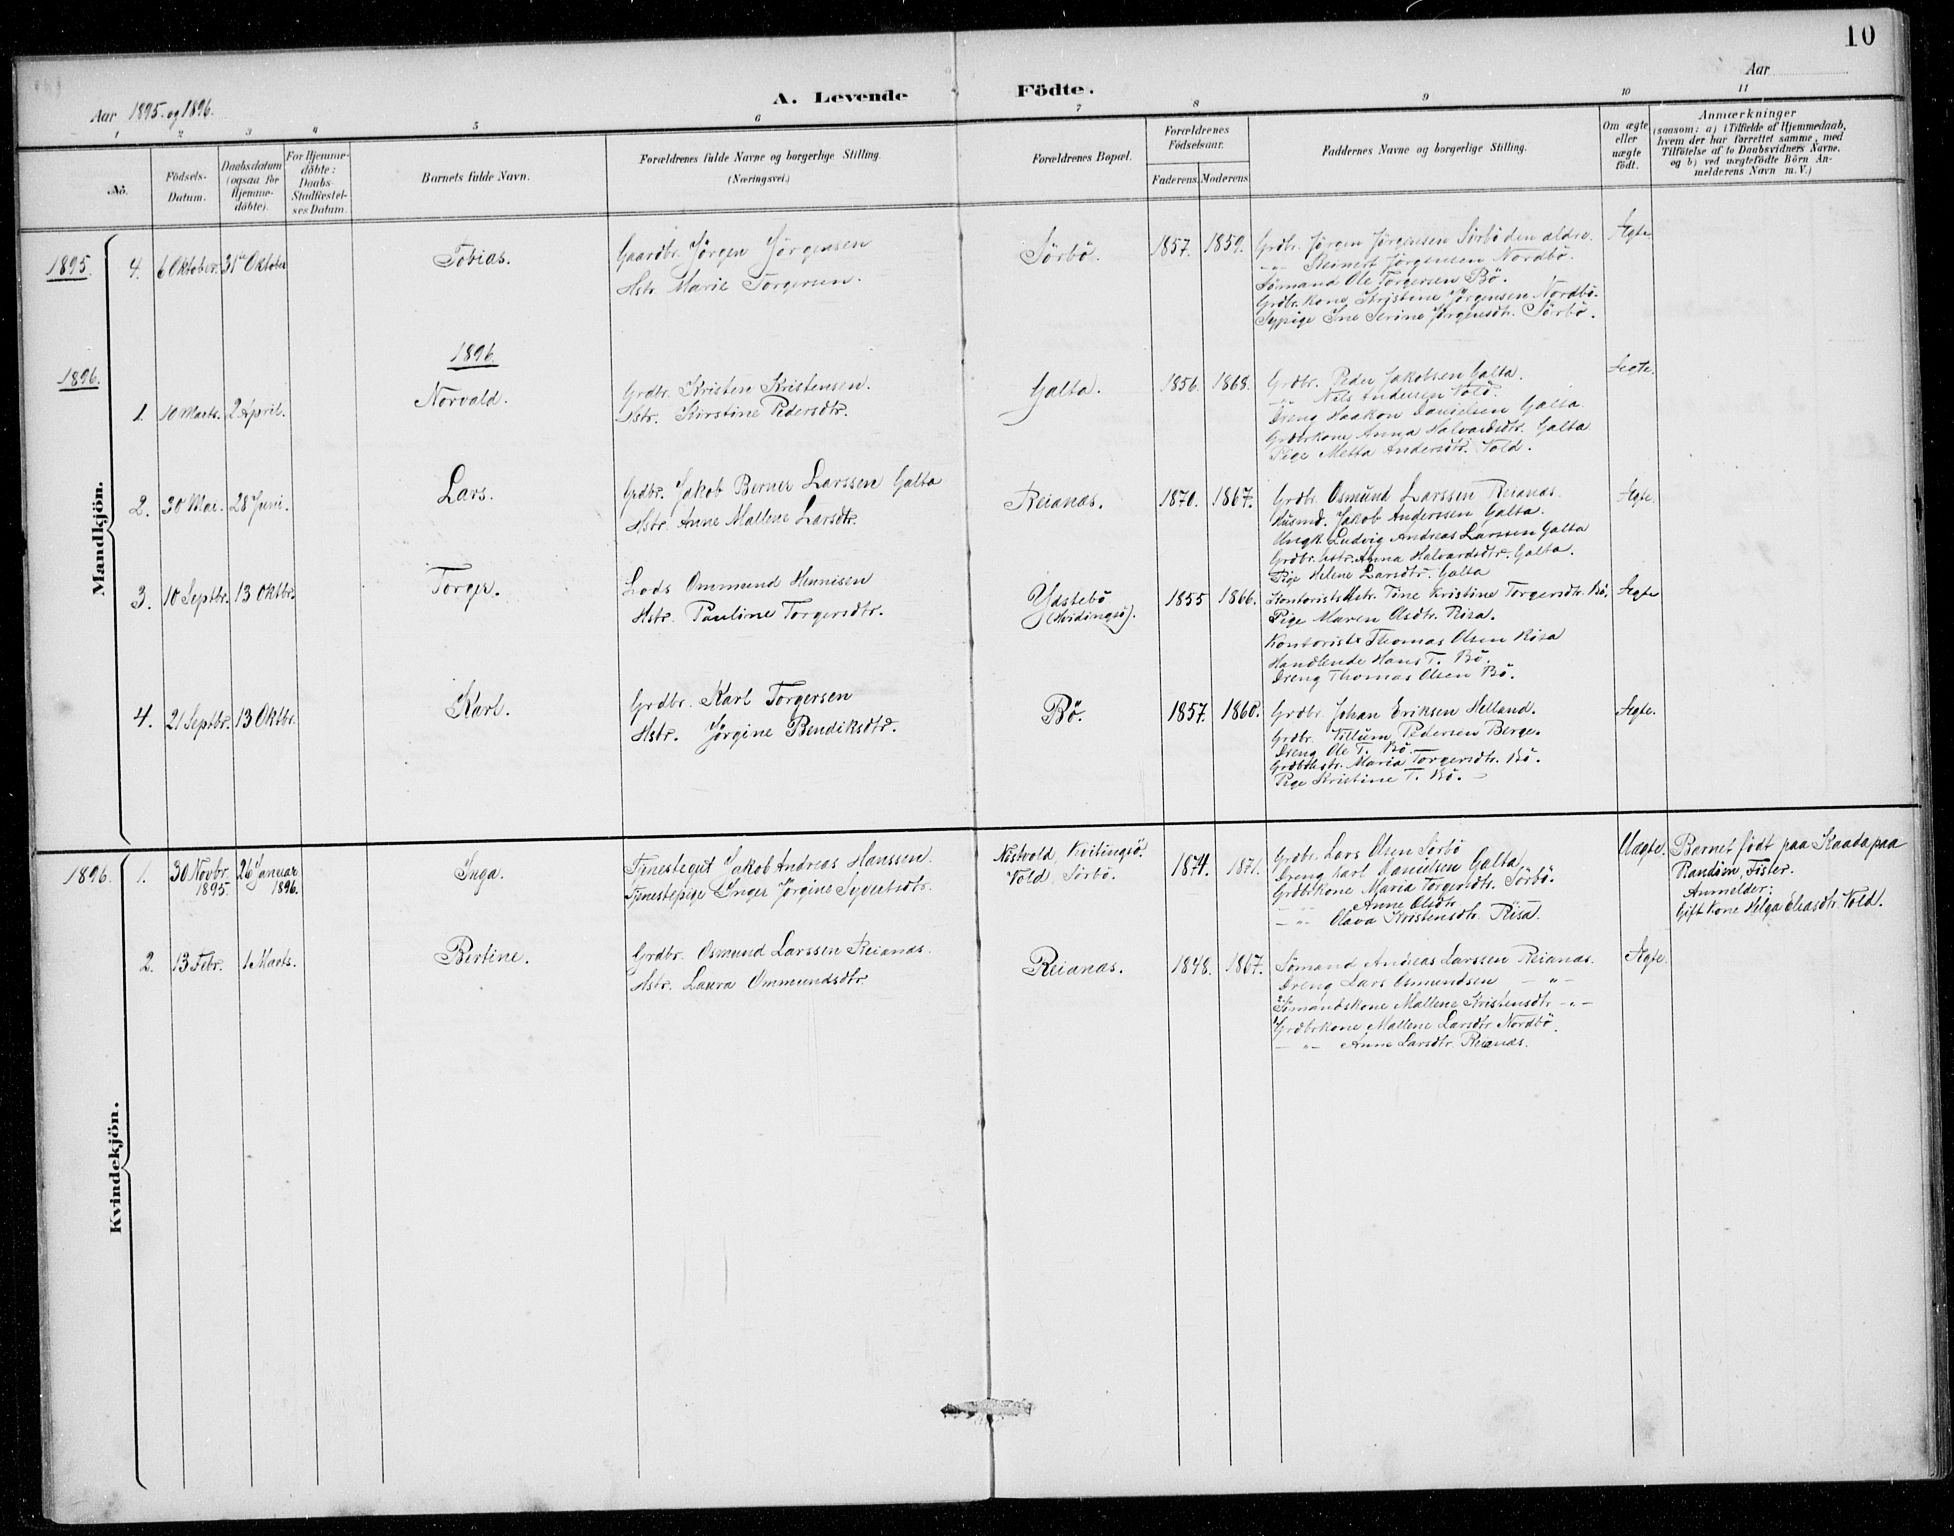 10
Aar 1895 og 1896.
A. Levende Födte.
Aar
1 2 3 4 5 6 7 8 9 10 11
No.
Födsels-Datum.
Daabsdatum (ogsaa for Hjemme-döbte).
For Hjemme-döbte: Daabs Stadfæstel-ses Datum.
Barnets fulde Navn.
Forældrenes fulde Navne og borgerlige Stilling.
(Næringsvei.)
Forældrenes Bopæl.
Forældrenes Födselsaar.
Faderens. Moderens.
Faddernes Navne og borgerlige Stilling.
Om ægte eller uægte födt.
Anmærkninger
(saasom: a) i Tilfælde af Hjemmedaab,
hvem der har forrettet samme, med
Tilföielse af to Daabsvidners Navne,
og b) ved uægtefödte Börn An-
melderens Navn m. V.)
Mandkjön.
1895.
4. 6 Oktober. 31 Oktober
Tobias.
Gaardbr. Jørgen Jørgensen
Hstr. Marie Torgersen.
Sörbö.
1857. 1859.
Grdbr. Jørgen Jørgensen Sörbö den ældre.
-"- Reinert Jørgensen Nordbö.
Sömand Ole Torgersen Bö.
Grdbr. Kone Kristine Jørgensen Nordbö.
Sypige Ine Serine Jørgensdtr. Sörbö.
Ægte.
1896.
1896.
1. 10 Marts. 2 April.
Norvald.
Grdbr. Kristen Kristensen.
Hstr. Kirstine Pedersdtr.
Galta.
1856. 1868.
Grdbr. Peder Jakobsen Galta.
-"- Nils Andersen Vold.
Dreng Haakon Danielsen Galta
Grdbrkone Anna Halvardsdtr. Galta
Pige Metta Andersdtr. Vold.
Ægte.
2. 30 Mai. 28 Juni.
Lars.
Grdbr. Jakob Berner Larssen Galta
Hstr. Anne Mallene Larsdtr.
Reianas.
1870. 1867.
Grdbr. Osmund Larssen Reianas.
Husmd. Jakob Anderssen Galta.
Ungk. Ludvig Andreas Larssen Galta
Grdbr. hstr. Anna Halvardsdtr. Galta.
Pige Helene Larsdtr. Galta
Ægte.
3. 10 Septbr. 13 Oktbr.
Torger.
Lods Ommund Hennisen
Hstr. Pauline Torgersdtr.
Ydstebö
(Hvidingsö).
1855 1866.
Kontorists Hstr. Tine Kristine Torgersdtr. Bö.
Pige Maren Olsdtr. Risa.
Kontorist Thomas Olsen Risa
Handlende Hans T. Bö.
Dreng Thomas Olsen Bö.
Ægte
4. 21 Septbr. 13 Oktbr.
Karl.
Grdbr. Karl Torgersen
Hstr. Jørgine Bendiksdtr.
Bö.
1857. 1860.
Grdbr. Johan Eriksen Helland.
Grdbr. Villum Pedersen Berge.
Dreng Ole T. Bö.
Grdbr.hstr. Maria Torgersdtr. Bö.
Pige Kristine T. Bö.
Ægte.
Kvindekjön.
1896.
1. 30 Novbr. 1895. 26 Januar 1896.
Inga.
Tjenestegut Jakob Andreas Hanssen.
Tjenestepige Inger Jørgine Syvertsdtr.
Nestvold, Kvitingsö.
Vold, Sörbö.
1874. 1871.
Grdbr. Lars Olsen Sörbö
Dreng Karl Danielsen Galta
Grdbrkone Maria Torgersdtr. Sörbö.
-"- Anne Olsdtr. "
-"- Olava Kristensdtr. Risa.
Uægte.
Barnet födt paa Skaada paa
Randöen, Fister.
Anmelder:
Gift Kone Helga Eliasdtr. Vold.
2. 13 Febr. 1 Marts.
Bertine.
Grdbr. Osmund Larssen Reianas.
Hstr. Laura Ommundsdtr.
Reianas.
1848. 1867.
Sömand Andreas Larssen Reianas.
Dreng Lars Osmundsen -"-
Sömandskone Mallene Kristensdtr -"-
Grdbrkone Mallene Larsdtr Nordbö.
-"- Anne Larsdtr. Reianas.
Ægte.